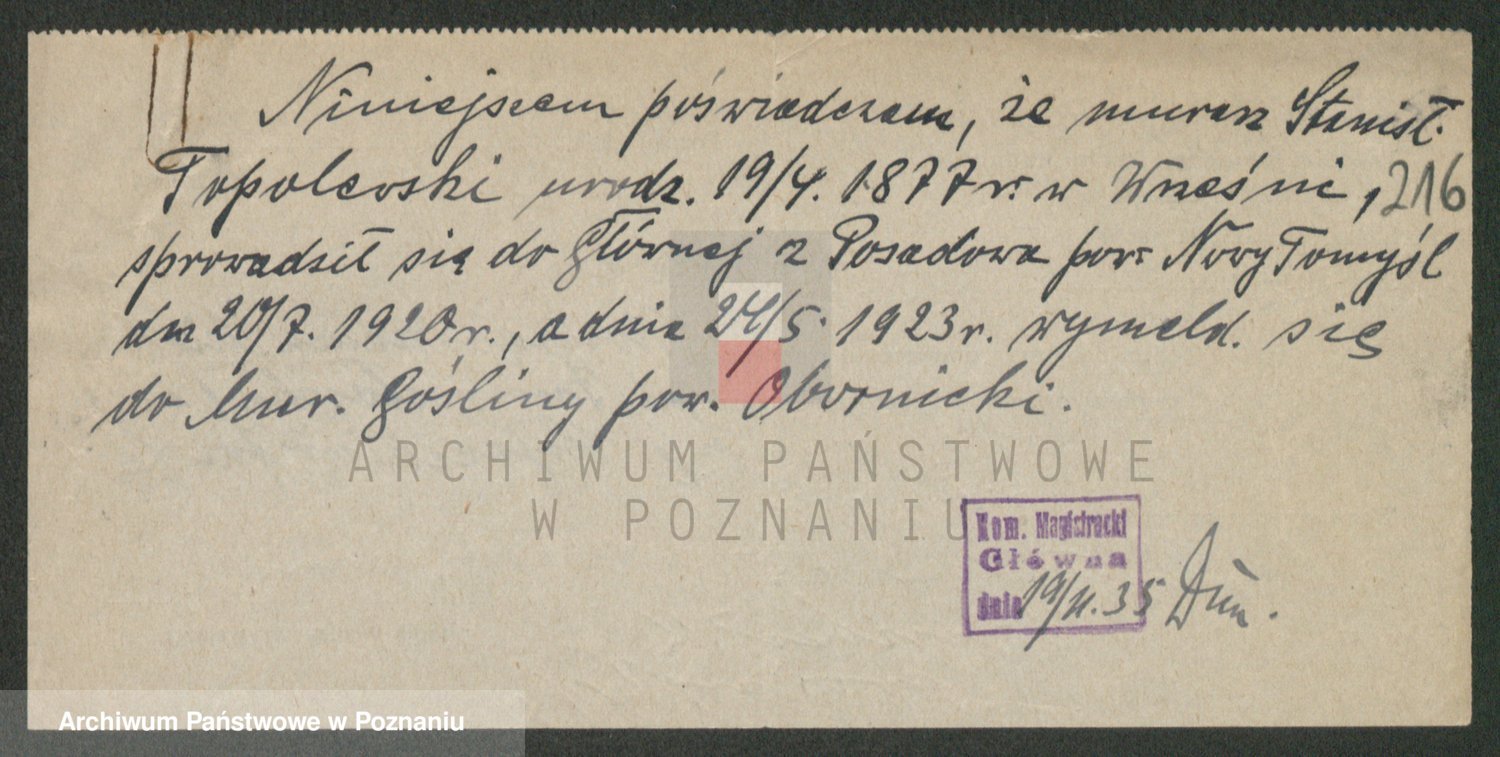 Niniejszem poświadczam, że murarz Stanisł.
Topolewski urodz. 19/4. 1877 r. w Wrześni, 216
sprowadził się do Głównej z Posadowa pow. Nowy Tomyśl
dn 20/7. 1920 r., a dnia 24/5 1923 r. wymeld. się
do Mur. Gośliny pow. Obornicki.
ARCHIWUM PAŃSTWOWE
W POZNANIU
Kom. Magistracki
Główna
dnia 19/11. 35
Archiwum Państwowe w Poznaniu